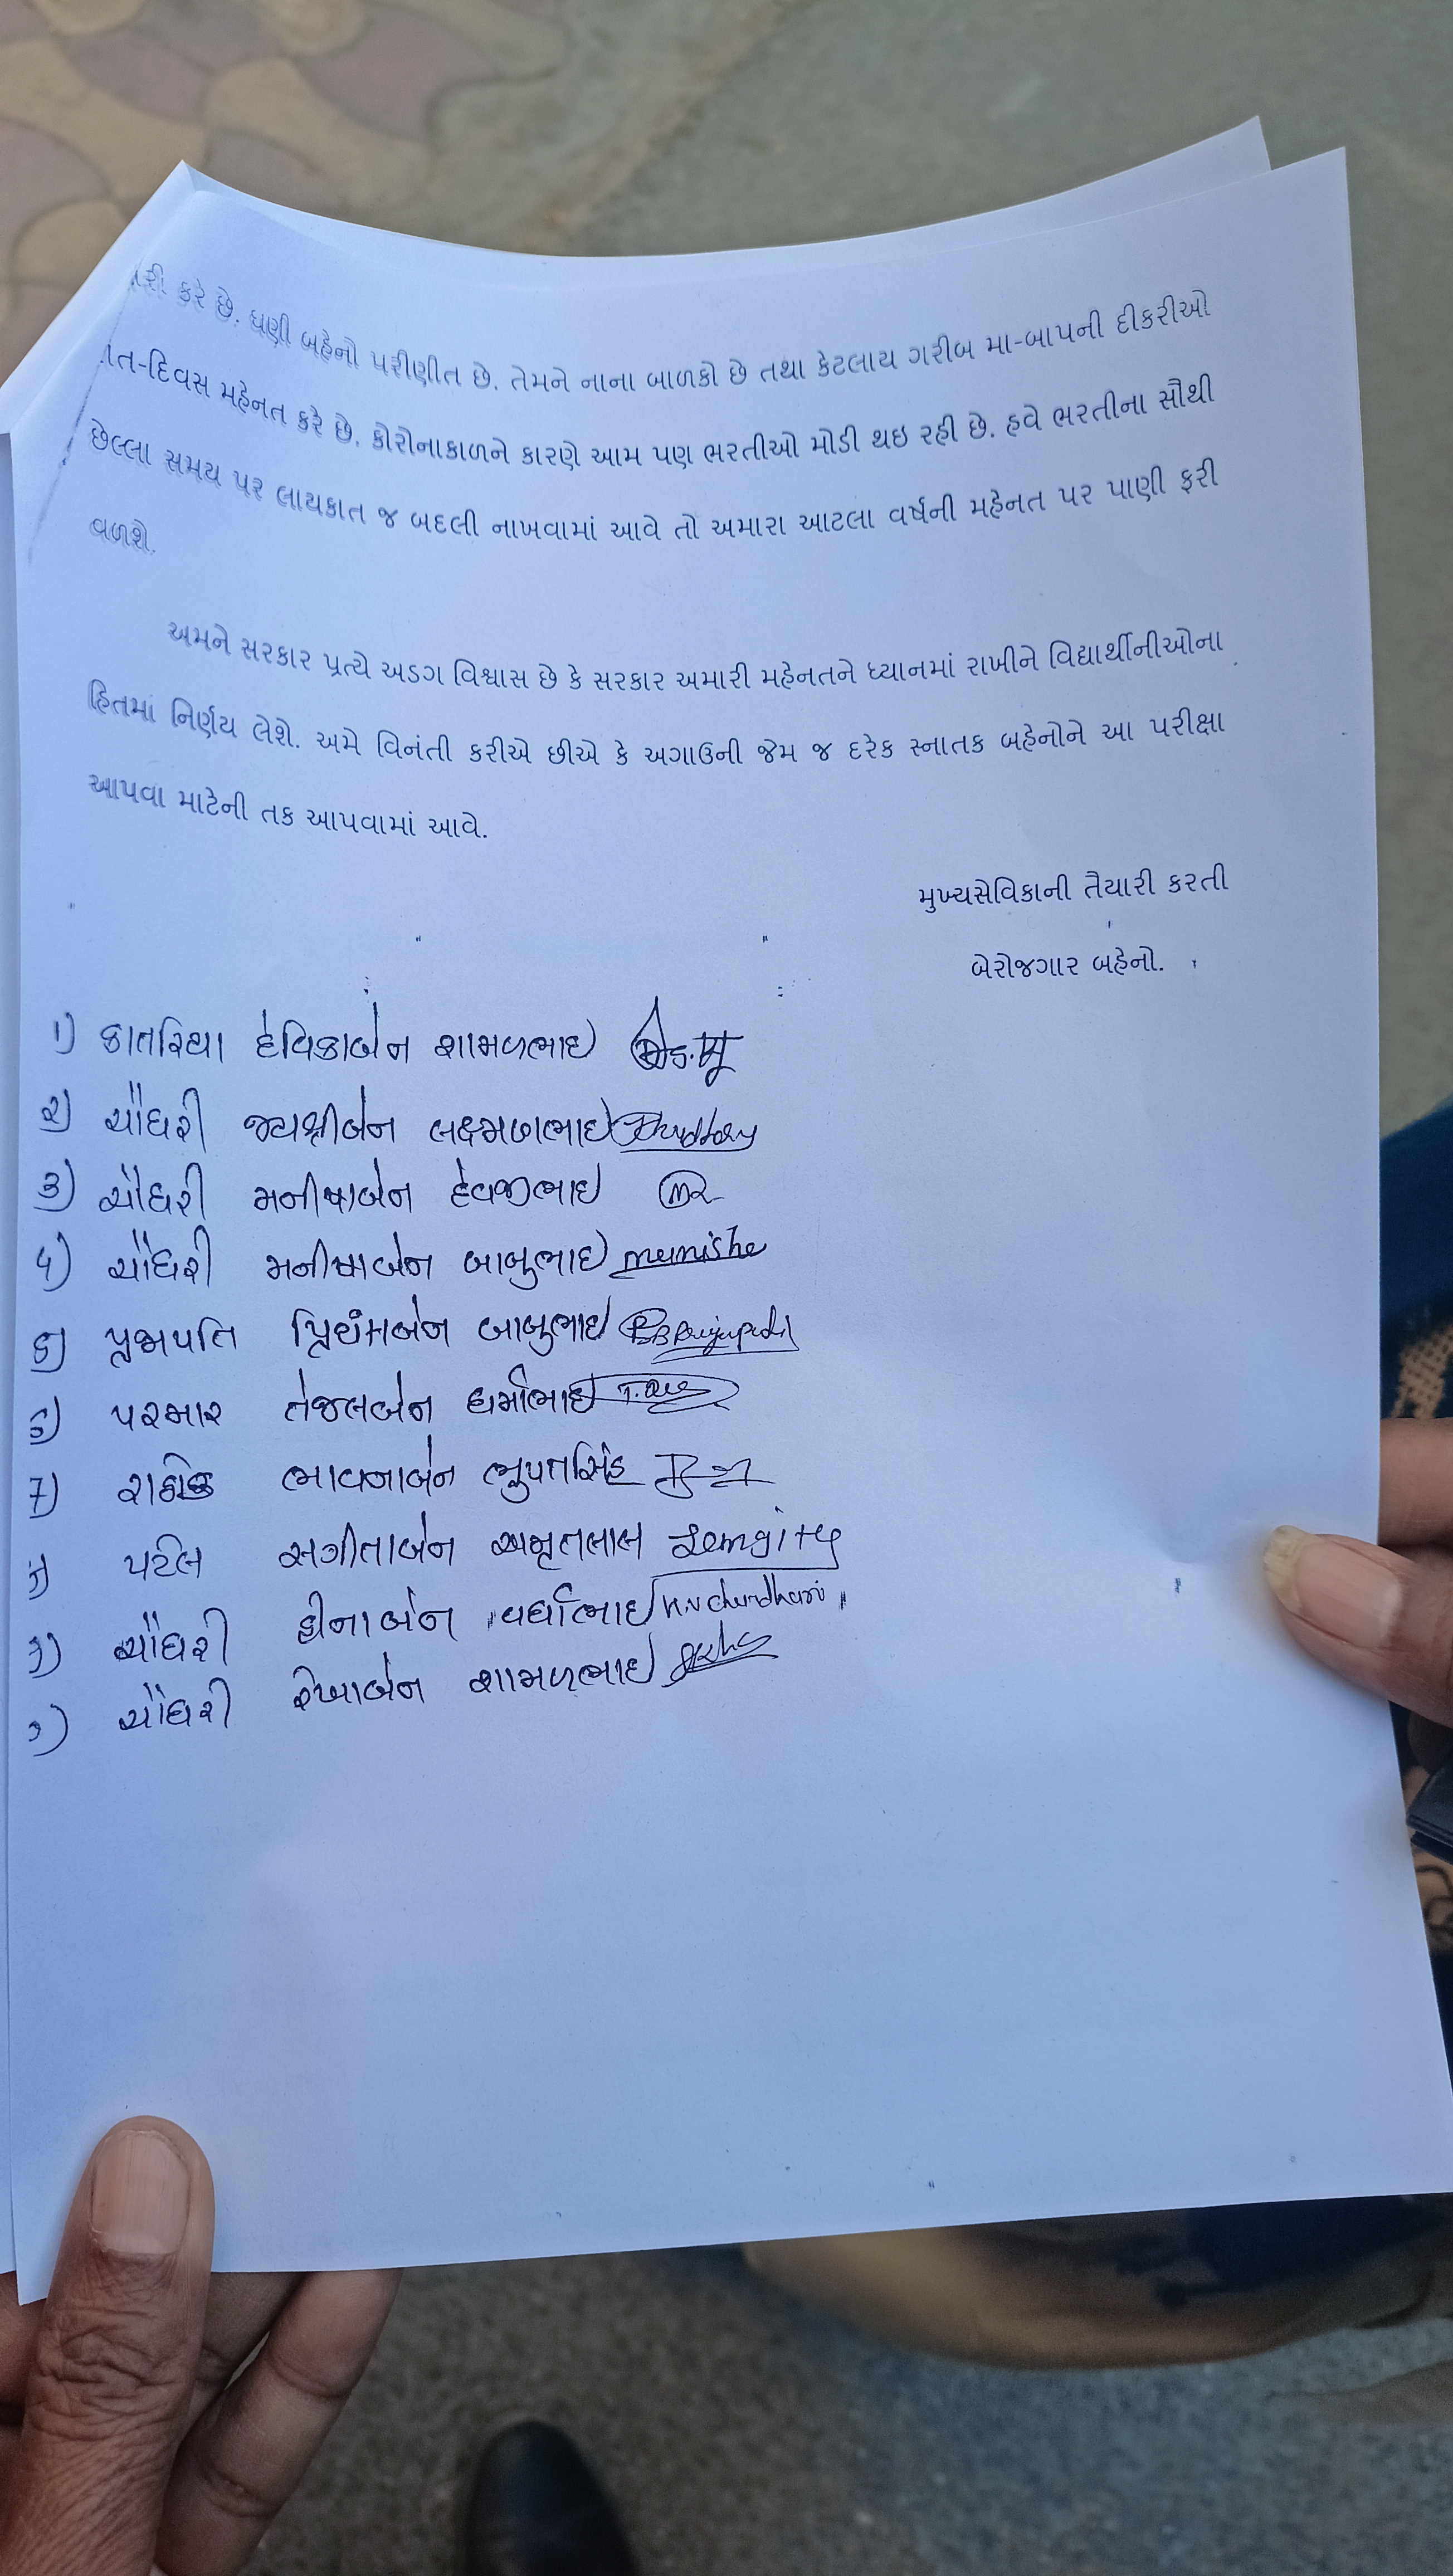 કરે છે. ઘણી બહેનો પરીણીત છે. તેમને નાના બાળકો છે તથા કેટલાય ગરીબ મા-બાપની દીકરીઓ
ાત-દિવસ મહેનત કરે છે. કોરોનાકાળને કારણે આમ પણ ભરતીઓ મોડી થઇ રહી છે. હવે ભરતીના સૌથી
છેલ્લા સમય પર લાયકાત જ બદલી નાખવામાં આવે તો અમારા આટલા વર્ષની મહેનત પર પાણી ફરી
વળશે.
અમને સરકાર પ્રત્યે અડગ વિશ્વાસ છે કે સરકાર અમારી મહેનતને ધ્યાનમાં રાખીને વિદ્યાર્થીનીઓના
હિતમાં નિર્ણય લેશે. અમે વિનંતી કરીએ છીએ કે અગાઉની જેમ જ દરેક સ્નાતક બહેનોને આ પરીક્ષા
આપવા માટેની તક આપવામાં આવે.
મુખ્યસેવિકાની તૈયારી કરતી
બેરોજગાર બહેનો.
1) કાતરિયા દેવિકાબેન શામળભાઇ
૨) ચૌધરી જયશ્રીબેન લક્ષ્મણભાઇ
૩) ચૌધરી મનીષાબેન દેવજીભાઇ
૪) ચૌધરી મનીષાબેન બાબુભાઇ
પ્રજાપતિ પ્રિયંમબેન બાબુભાઇ
પરમાર તેજલબેન ધર્માભાઇ
7) ભાવનાબેન ભુપતસિંહ
પટેલ સંગીતાબેન અમૃતલાલ
ચૌધરી હીનાબેન વર્ધાભાઇ
ચૌધરી રેખાબેન શામળભાઇ